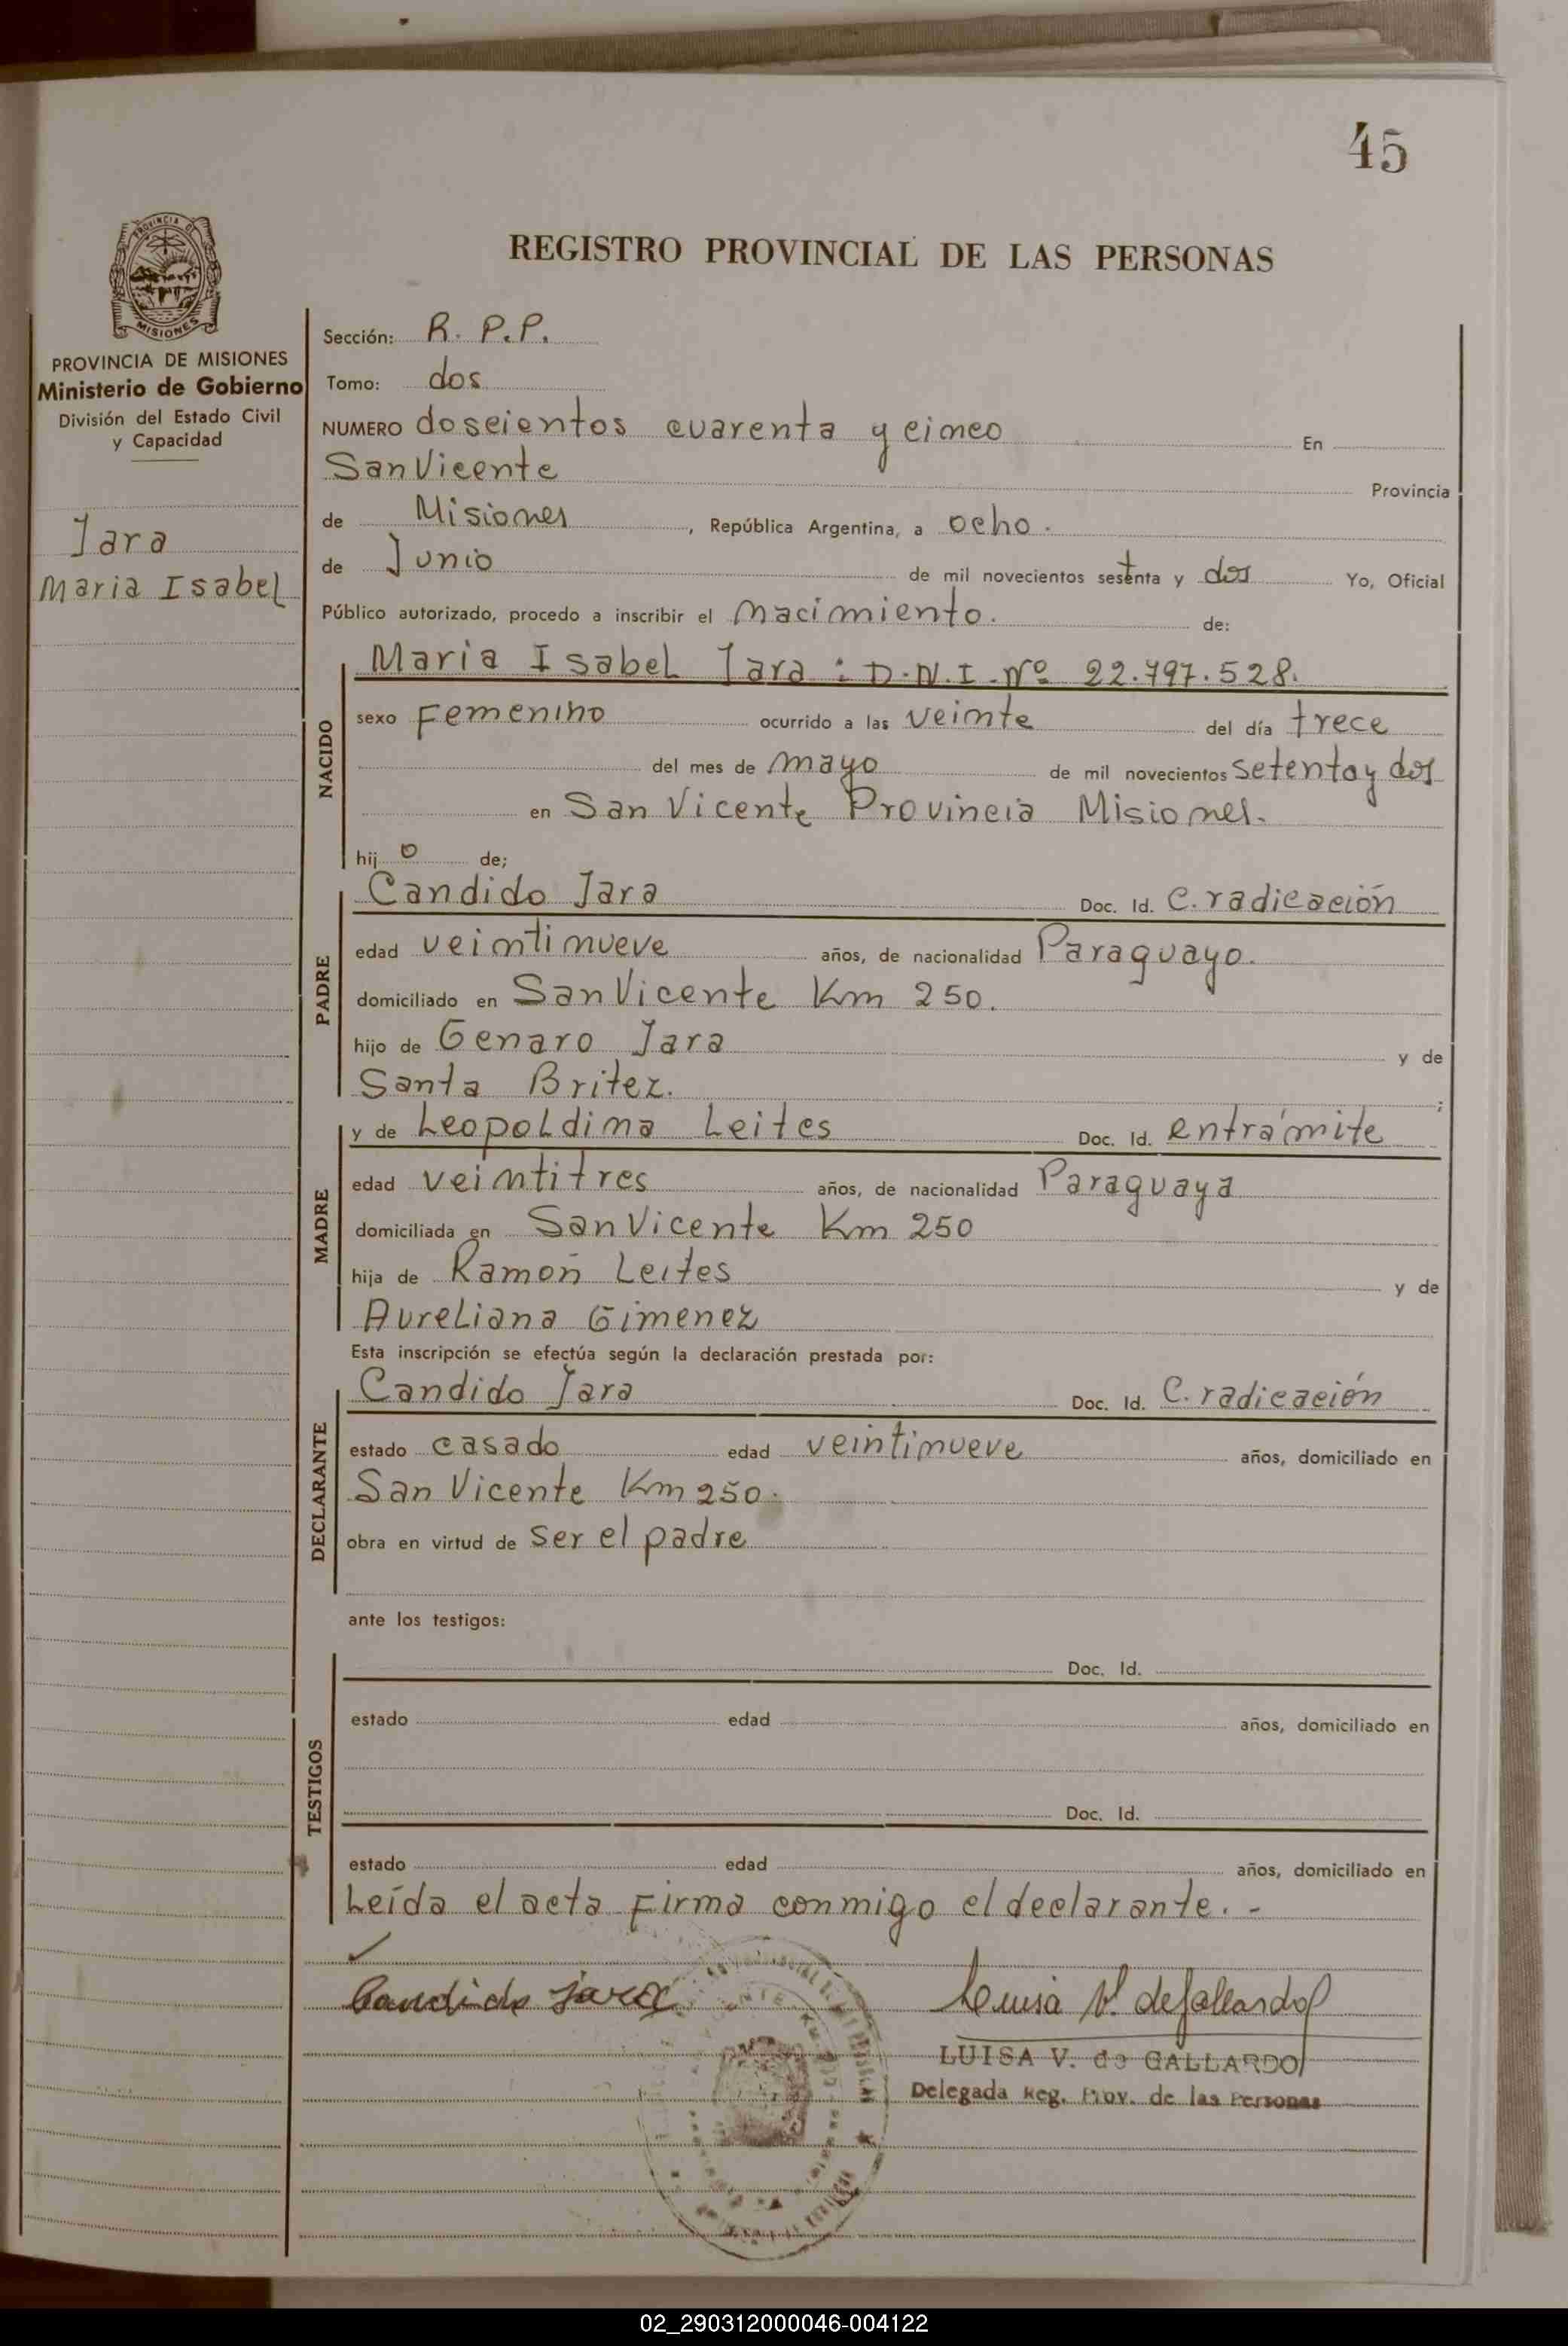 45
PROVINCIA DE MISIONES
Ministerio de Gobierno
División del Estado Civil
y Capacidad
Jara
Maria Isabel
REGISTRO PROVINCIAL DE LAS PERSONAS
Sección: R. P. P.
Tomo: dos
NUMERO doscientos cuarenta y cinco En
San Vicente Provincia
de Misiones, República Argentina, a ocho.
de Junio de mil novecientos setenta y dos Yo, Oficial
Público autorizado, procedo a inscribir el nacimiento. de:
Maria Isabel Jara : D.N.I. Nº 22.797.528.
NACIDO
sexo Femenino ocurrido a las veinte del día trece
del mes de mayo de mil novecientos setenta y dos
en San Vicente Provincia Misiones.
hij o de;
PADRE
Candido Jara Doc. Id. C. radicación
edad veintinueve años, de nacionalidad Paraguayo.
domiciliado en San Vicente Km 250.
hijo de Genaro Jara y de
Santa Britez. ;
MADRE
y de Leopoldina Leites Doc. Id. en trámite
edad veintitres años, de nacionalidad Paraguaya
domiciliada en San Vicente Km 250
hija de Ramón Leites y de
Aureliana Gimenez
Esta inscripción se efectúa según la declaración prestada por:
DECLARANTE
Candido Jara Doc. Id. C. radicación
estado casado edad veintinueve años, domiciliado en
San Vicente Km 250.
obra en virtud de ser el padre
ante los testigos:
TESTIGOS
Doc. Id.
estado edad años, domiciliado en
Doc. Id.
estado edad años, domiciliado en
Leída el acta firma conmigo el declarante. -
Candido jara Luisa V. de Gallardo
LUISA V. de GALLARDO
Delegada Reg. Prov. de las Personas
02_290312000046-004122